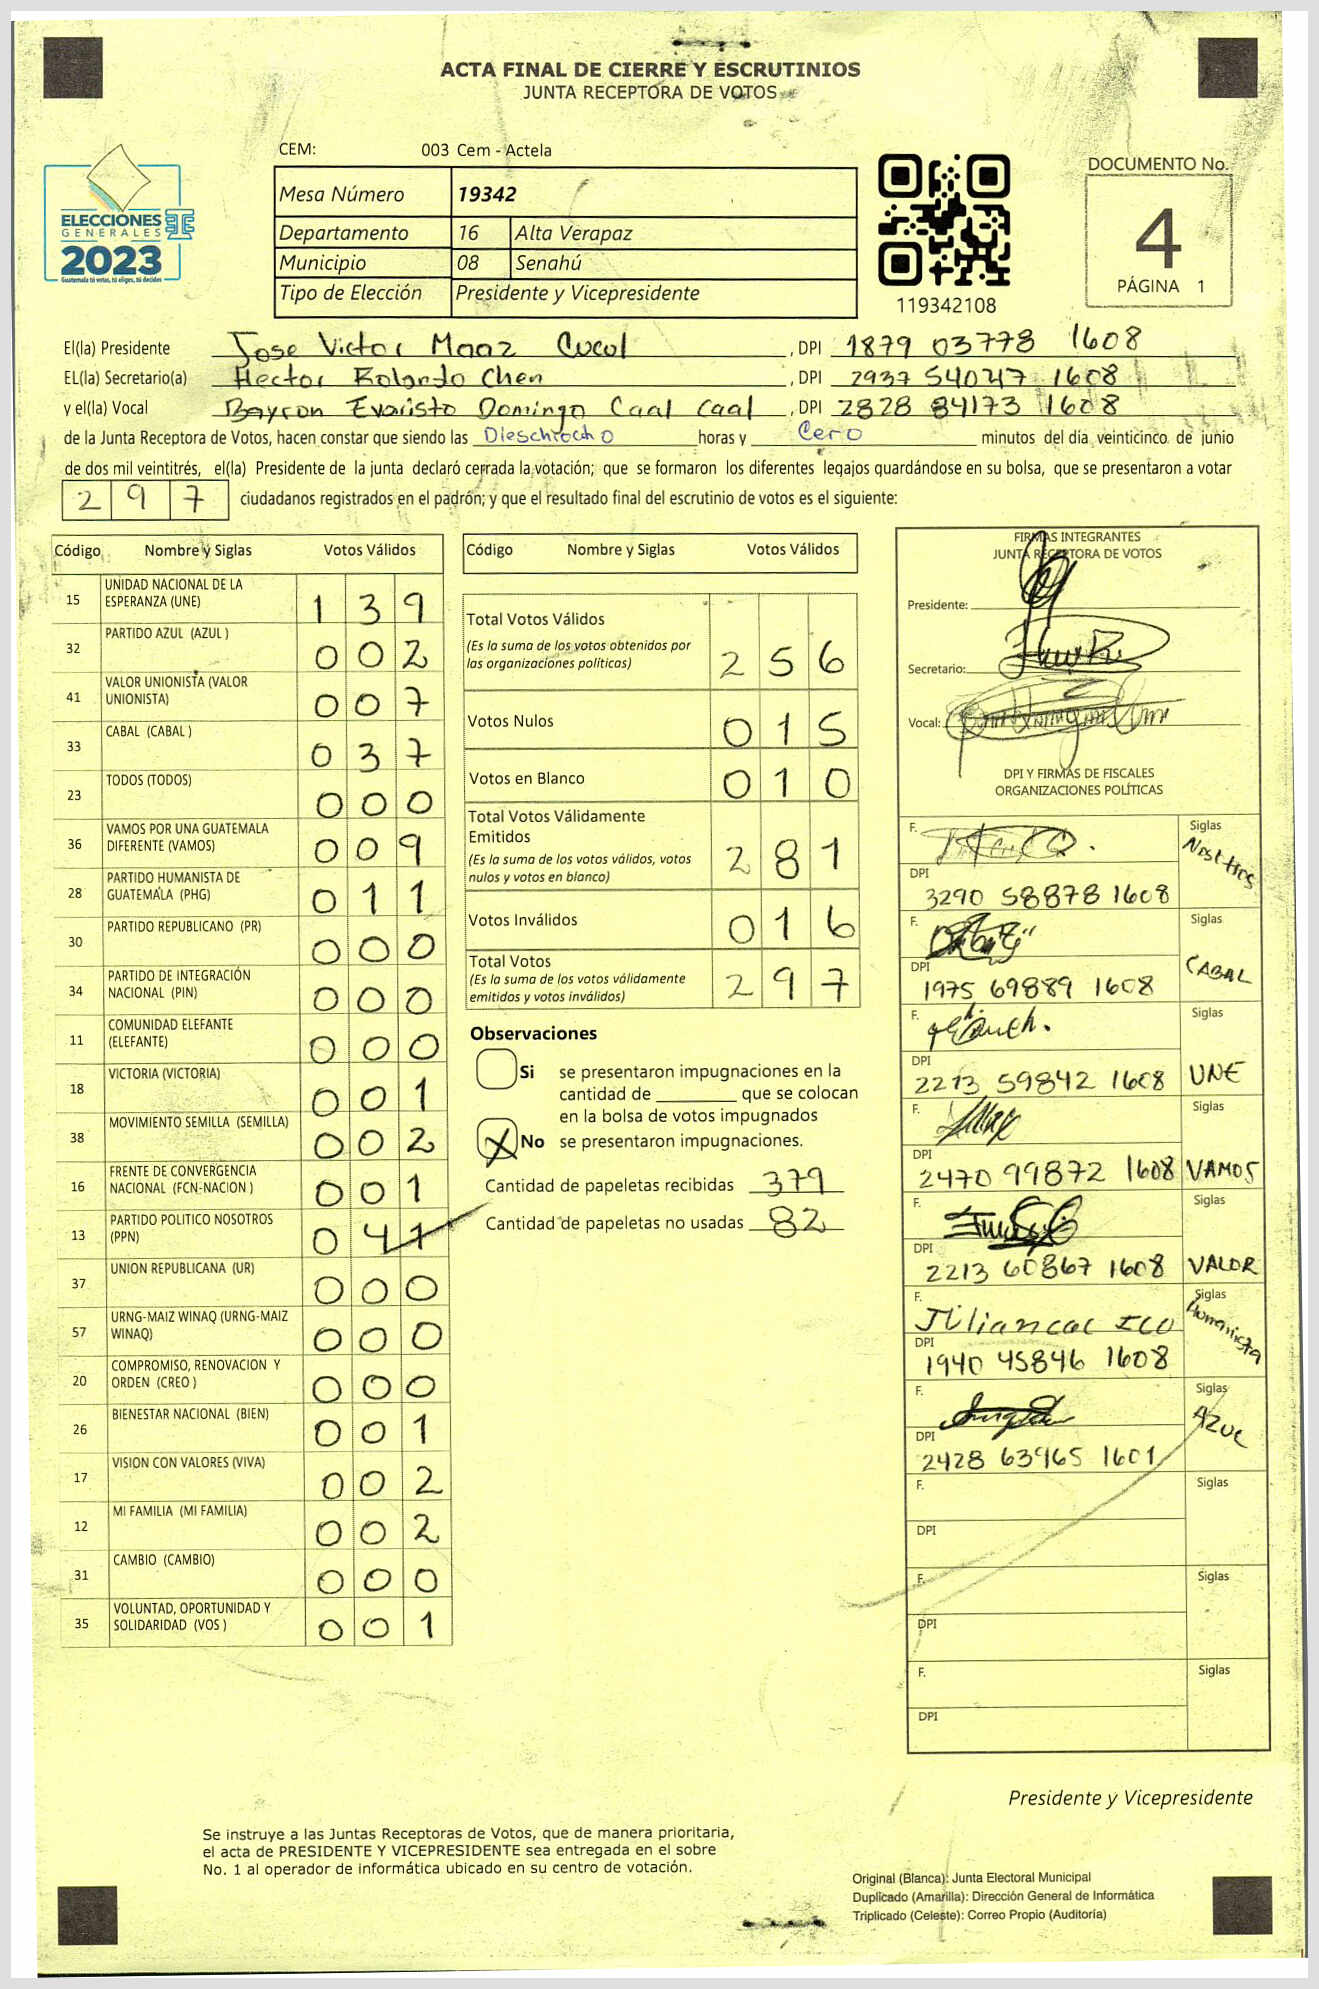 ACTA FINAL DE CIERRE Y ESCRUTINIOS
JUNTA RECEPTORA DE VOTOS
CEM: 003 Cem - Actela
DOCUMENTO No.
4
PÁGINA 1
ELECCIONES
GENERALES
2023
Guatemala tú votas, tú eliges, tú decides
Mesa Número 19342
Departamento 16 Alta Verapaz
Municipio 08 Senahú
Tipo de Elección Presidente y Vicepresidente
119342108
El(la) Presidente Jose Victor Maaz Cucul , DPI 1879 03773 1608
EL(la) Secretario(a) Hector Rolando Chen , DPI 2937 54047 1608
y el(la) Vocal Bayron Evaristo Domingo Caal Caal , DPI 2828 84173 1608
de la Junta Receptora de Votos, hacen constar que siendo las Dieschiocho horas y Cero minutos del día veinticinco de junio
de dos mil veintitrés, el(la) Presidente de la junta declaró cerrada la votación; que se formaron los diferentes legajos guardándose en su bolsa, que se presentaron a votar
297 ciudadanos registrados en el padrón; y que el resultado final del escrutinio de votos es el siguiente:
Código Nombre y Siglas Votos Válidos
15 UNIDAD NACIONAL DE LA ESPERANZA (UNE) 139
32 PARTIDO AZUL (AZUL ) 002
41 VALOR UNIONISTA (VALOR UNIONISTA) 007
33 CABAL (CABAL ) 037
23 TODOS (TODOS) 000
36 VAMOS POR UNA GUATEMALA DIFERENTE (VAMOS) 009
28 PARTIDO HUMANISTA DE GUATEMALA (PHG) 011
30 PARTIDO REPUBLICANO (PR) 000
34 PARTIDO DE INTEGRACIÓN NACIONAL (PIN) 000
11 COMUNIDAD ELEFANTE (ELEFANTE) 000
18 VICTORIA (VICTORIA) 001
38 MOVIMIENTO SEMILLA (SEMILLA) 002
16 FRENTE DE CONVERGENCIA NACIONAL (FCN-NACION ) 001
13 PARTIDO POLITICO NOSOTROS (PPN) 041
37 UNION REPUBLICANA (UR) 000
57 URNG-MAIZ WINAQ (URNG-MAIZ WINAQ) 000
20 COMPROMISO, RENOVACION Y ORDEN (CREO ) 000
26 BIENESTAR NACIONAL (BIEN) 001
17 VISION CON VALORES (VIVA) 002
12 MI FAMILIA (MI FAMILIA) 002
31 CAMBIO (CAMBIO) 000
35 VOLUNTAD, OPORTUNIDAD Y SOLIDARIDAD (VOS ) 001
Código Nombre y Siglas Votos Válidos
Total Votos Válidos 256
(Es la suma de los votos obtenidos por
las organizaciones políticas)
Votos Nulos 015
Votos en Blanco 010
Total Votos Válidamente
Emitidos 281
(Es la suma de los votos válidos, votos
nulos y votos en blanco)
Votos Inválidos 016
Total Votos 297
(Es la suma de los votos válidamente
emitidos y votos inválidos)
Observaciones
Si se presentaron impugnaciones en la
cantidad de que se colocan
en la bolsa de votos impugnados
X No se presentaron impugnaciones.
Cantidad de papeletas recibidas 379
Cantidad de papeletas no usadas 82
FIRMAS INTEGRANTES
JUNTA RECEPTORA DE VOTOS
Presidente:
Secretario:
Vocal:
DPI Y FIRMAS DE FISCALES
ORGANIZACIONES POLÍTICAS
F. Siglas
DPI 3290 58878 1608
F. Siglas CABAL
DPI 1975 69889 1608
F. Siglas UNE
DPI 2213 59842 1608
F. Siglas VAMOS
DPI 2470 99872 1608
F. Siglas VALOR
DPI 2213 60867 1608
F. Siglas Humanista
DPI 1940 45846 1608
F. Siglas AZUL
DPI 2428 63965 1601
F. Siglas
DPI
F. Siglas
DPI
F. Siglas
DPI
Presidente y Vicepresidente
Se instruye a las Juntas Receptoras de Votos, que de manera prioritaria,
el acta de PRESIDENTE Y VICEPRESIDENTE sea entregada en el sobre
No. 1 al operador de informática ubicado en su centro de votación.
Original (Blanca): Junta Electoral Municipal
Duplicado (Amarilla): Dirección General de Informática
Triplicado (Celeste): Correo Propio (Auditoría)